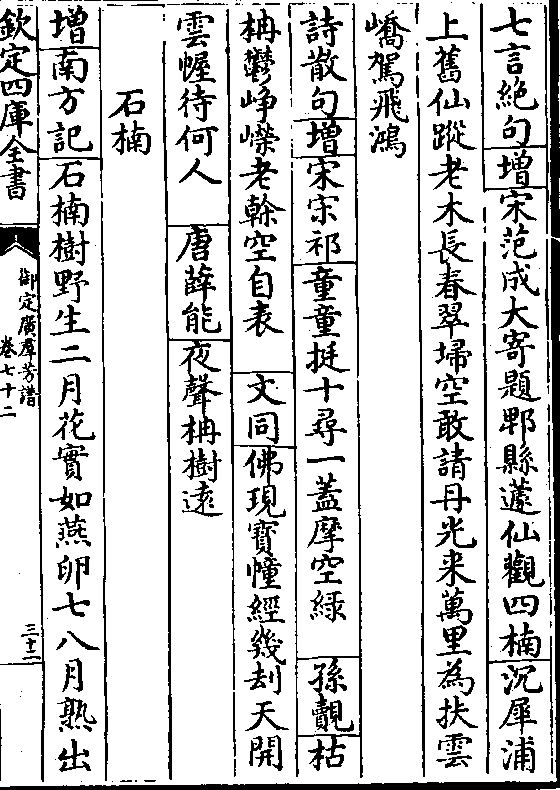 七言絶句增宋范成大寄題郫縣蘧仙觀四楠沉犀浦
上舊仙蹤老木長春翠埽空敢請丹光来萬里為扶雲
嶠駕飛鴻
詩散句增宋宋祁童童挺十尋一蓋摩空緑 孫覿枯
枏鬱崢嶸老榦空自表 文同佛現寳幢經幾刦天開
雲幄待何人 唐薛能夜聲枏樹遠
石楠
增南方記石楠樹野生二月花實如燕卵七八月熟出
欽定四庫全書
御定廣羣芳譜
卷七十二
三十二